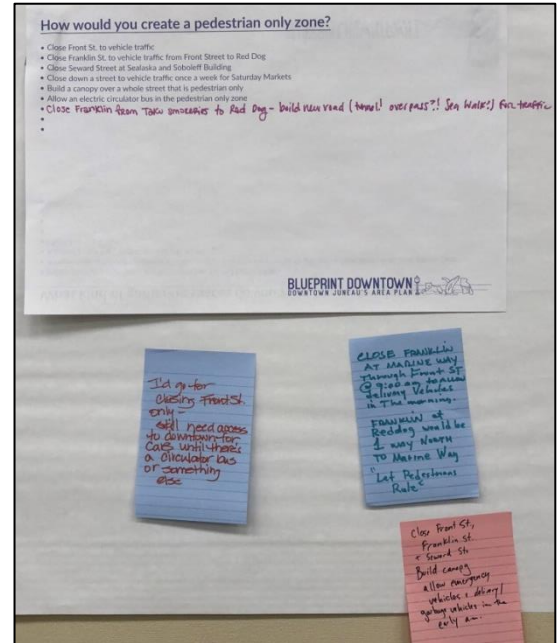 How would you create a pedestrian only zone?
• Close Front St. to vehicle traffic
• Close Franklin St. to vehicle traffic from Front Street to Red Dog
• Close Seward Street at Sealaska and Soboleff Building
• Close down a street to vehicle traffic once a week for Saturday Markets
• Build a canopy over a whole street that is pedestrian only
• Allow an electric circulator bus in the pedestrian only zone
• Close Franklin from Taku Smokeries to Red Dog - build new road (tunnel! overpass?! Sea Walk!) for traffic
•
•
BLUEPRINT DOWNTOWN
DOWNTOWN JUNEAU'S AREA PLAN
I'd go for
closing Front St.
only -
still need access
to downtown for
cars until there's
a circulator bus
or something
else
CLOSE FRANKLIN
AT MARINE WAY
Through Front ST
@ 9:00 am to ALLOW
delivery Vehicles
in The morning.
FRANKLIN at
Reddog would be
1 way North
TO Marine Way
"Let Pedestrians
Rule"
Close Front St,
Franklin St.
& Seward St.
Build canopy
allow emergency
vehicles & delivery/
garbage vehicles in the
early am.